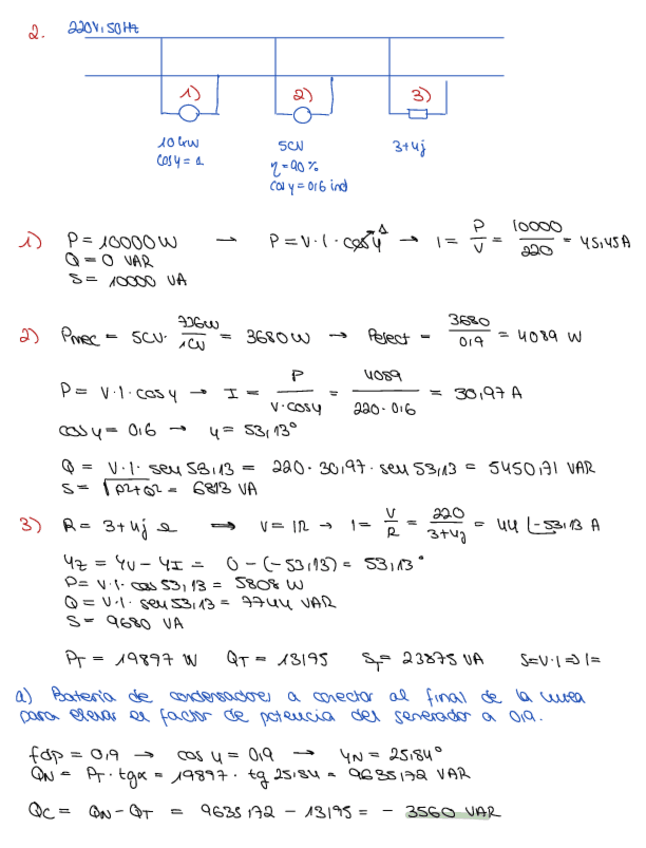 2. 220V, 50Hz
1) 2) 3)
10 kW 5CV 3+4j
cos φ = 1 η = 90%
cos φ = 0,6 ind
1) P = 10000 W → P = V·I·cos φ 1 → I = P/V = 10000/220 = 45,45 A
Q = 0 VAR
S = 10000 VA
2) Pmec = 5CV · 736W/1CV = 3680 W → Pelect = 3680/0,9 = 4089 W
P = V·I·cos φ → I = P/V·cos φ = 4089/220·0,6 = 30,97 A
cos φ = 0,6 → φ = 53,13°
Q = V·I·sen 53,13 = 220·30,97·sen 53,13 = 5450,71 VAR
S = √P2+Q2 = 6813 VA
3) R = 3+4j Ω → V = IR → I = V/R = 220/3+4j = 44 ∠-53,13 A
φZ = φV - φI = 0 - (-53,13) = 53,13°
P = V·I·cos 53,13 = 5808 W
Q = V·I·sen 53,13 = 7744 VAR
S = 9680 VA
PT = 19897 W QT = 13195 ST = 23875 VA S=V·I => I=
a) Batería de condensadores a conectar al final de la línea
para elevar el factor de potencia del generador a 0,9.
fdp = 0,9 → cos φ = 0,9 → φN = 25,84°
QN = PT·tgα = 19897 · tg 25,84 = 9635,72 VAR
QC = QN - QT = 9635,72 - 13195 = - 3560 VAR